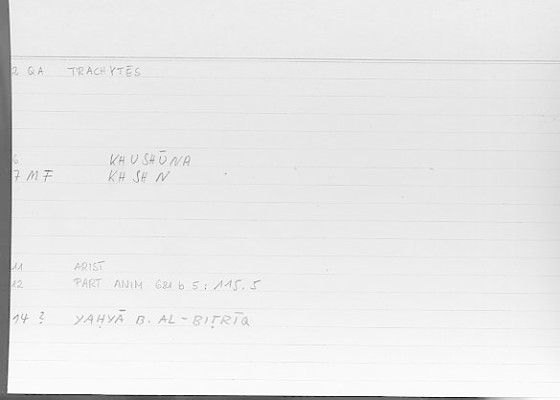 2 QA TRACHYTĒS
6 KHUSHŪNA
7 MF KH SH N
11 ARIST
12 PART ANIM 681 b 5 : 115.5
14 ? YAḤYĀ B. AL-BIṬRĪQ